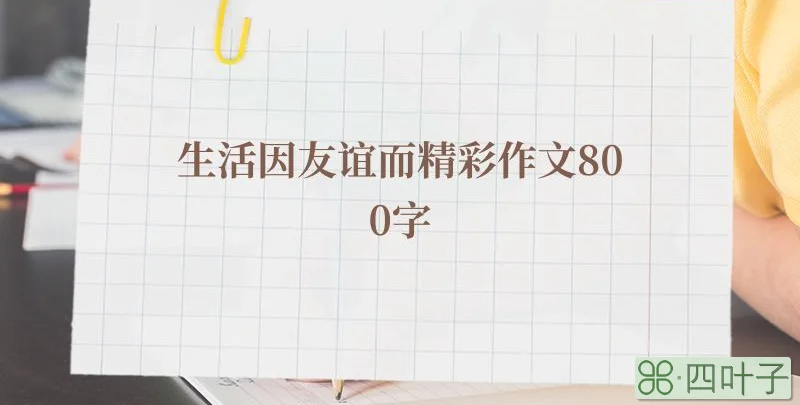 生活因友谊而精彩作文80
0字
四叶子